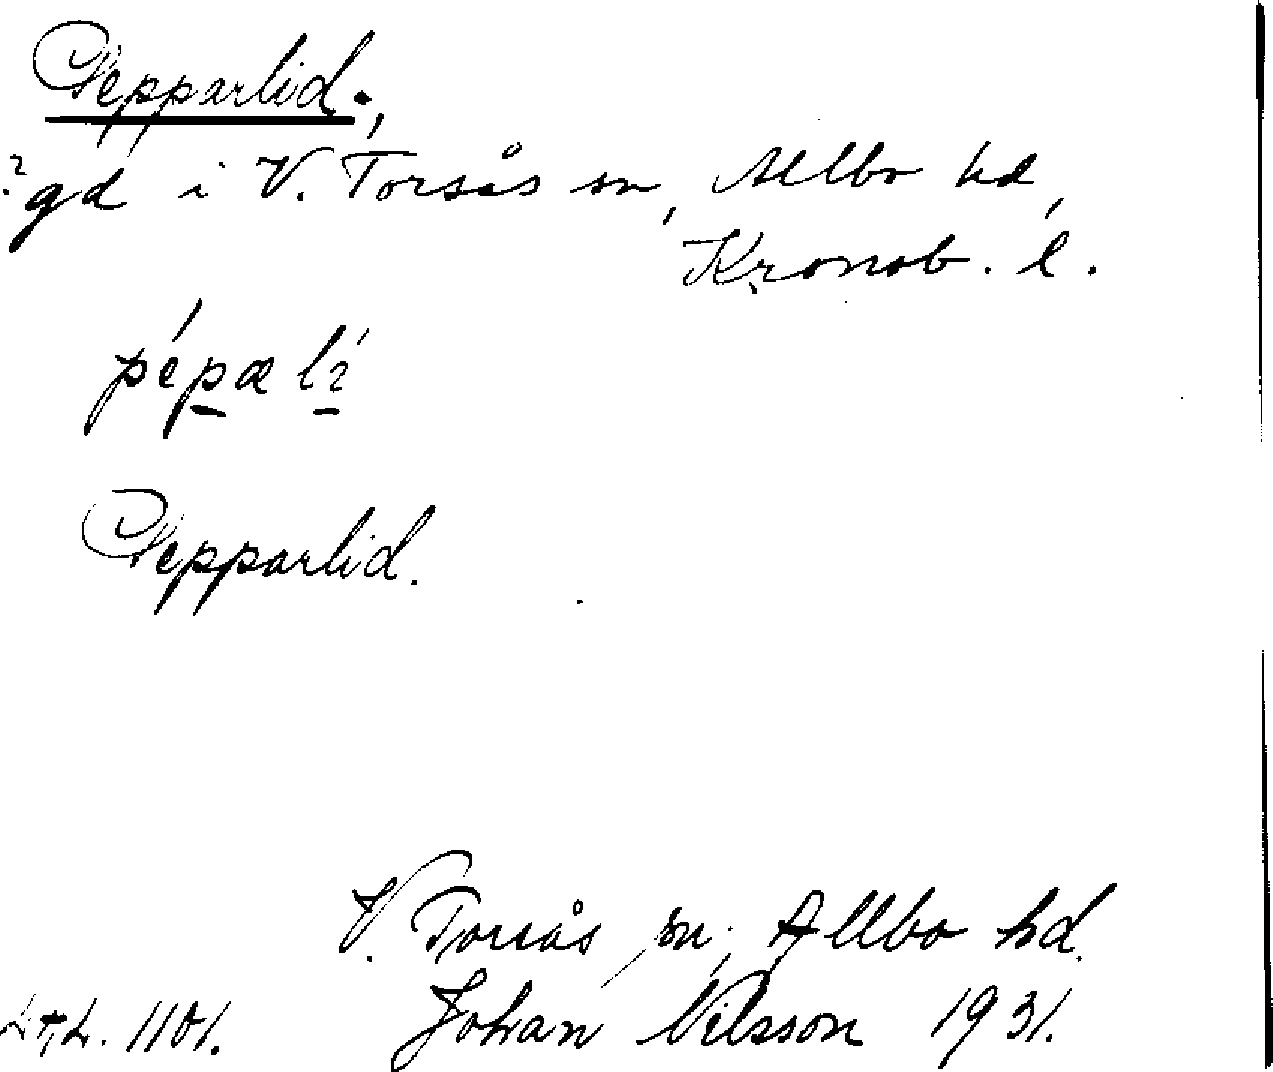 Pepparlid.,
? gd i V. Torsås sn, Allbo hd,
Kronob. l.
pépæ lí
Pepparlid.
V. Torsås sn, Allbo hd.
1101. Johan Nilsson 1931.